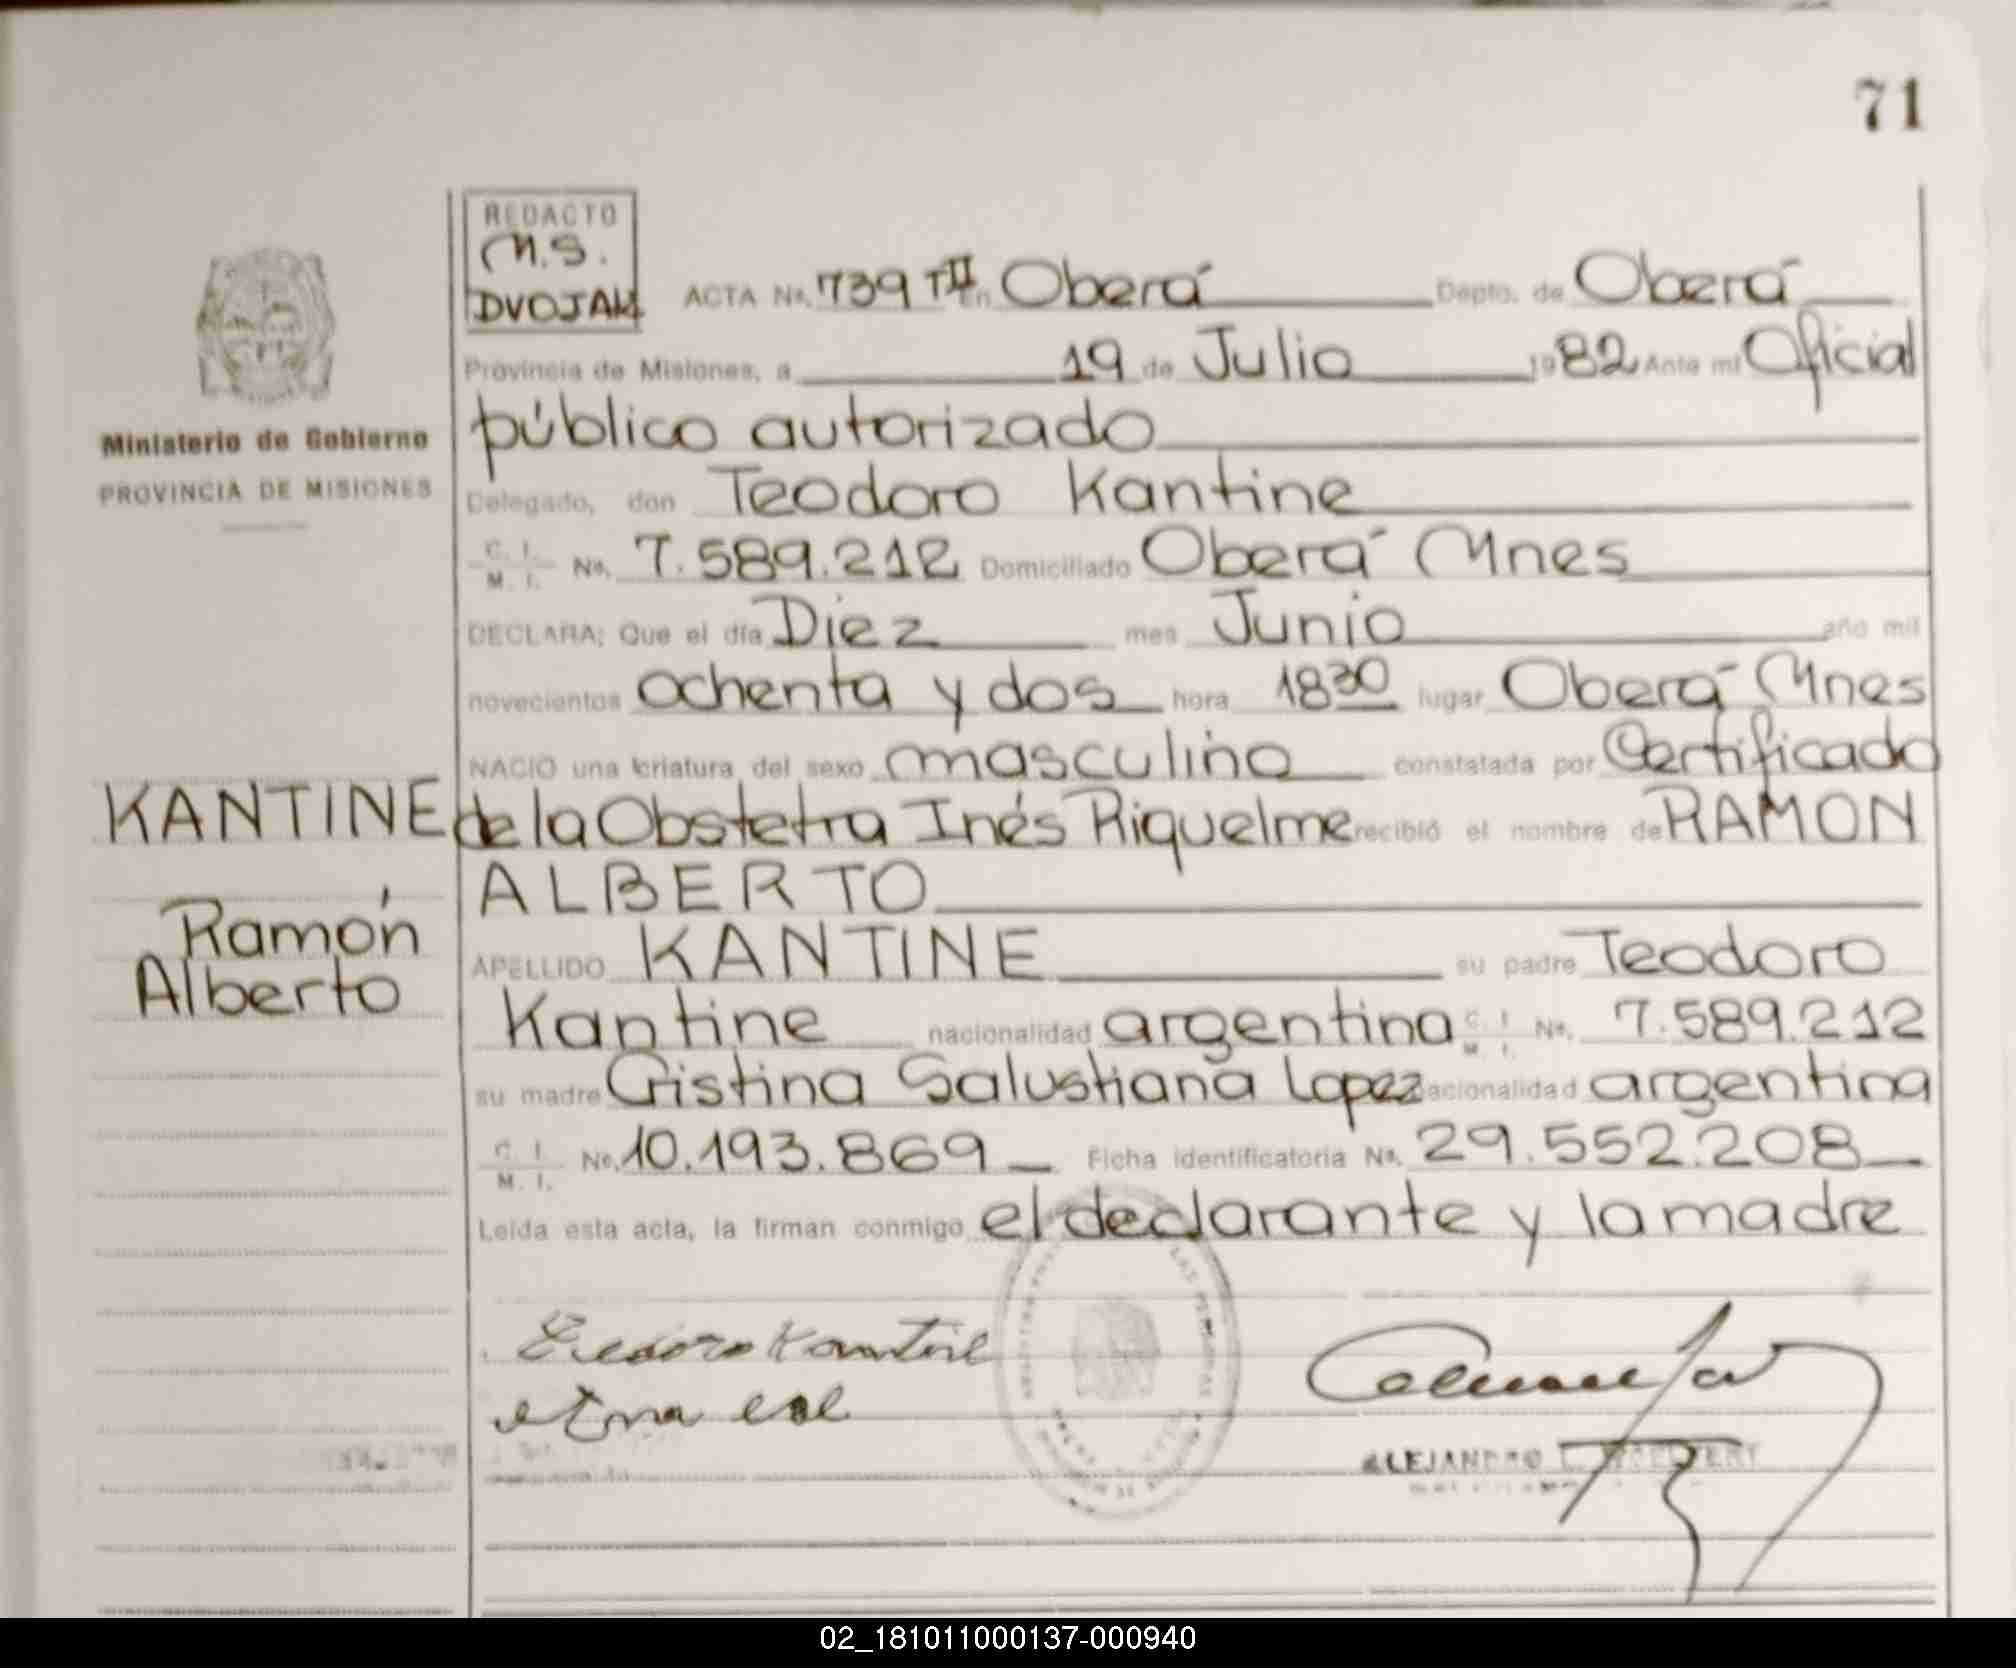 71
REDACTO
M.S.
DVOJAK
ACTA No. 739 TII En Oberá Depto. de Oberá
Provincia de Misiones, a 19 de Julio 1982 Ante mí Oficial
público autorizado
Ministerio de Gobierno
PROVINCIA DE MISIONES
Delegado, don Teodoro Kantine
C. I. M. I. No. 7.589.212 Domiciliado Oberá Mnes
DECLARA; Que el día Diez mes Junio año mil
novecientos ochenta y dos hora 18 30 lugar Oberá Mnes
NACIO una criatura del sexo masculino constatada por Certificado
de la Obstetra Inés Riquelme recibió el nombre de RAMON
ALBERTO
KANTINE
Ramón
Alberto
APELLIDO KANTINE su padre Teodoro
Kantine nacionalidad argentina C. I. M. I. No. 7.589.212
su madre Cristina Salustiana Lopez nacionalidad argentina
C. I. M. I. No. 10.193.869 Ficha identificatoria No. 29.552.208
Leída esta acta, la firman conmigo el declarante y la madre
Teodoro Kantine
ALEJANDRO
02_181011000137-000940